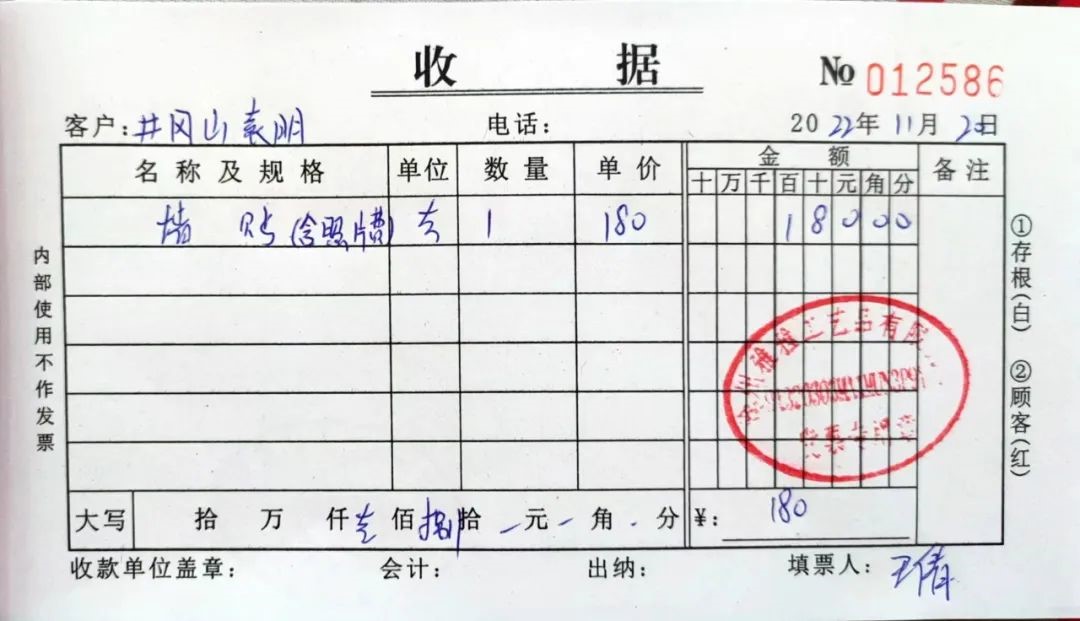 收 据 № 012586
客户：井冈山袁明 电话： 2022年11月20日
名称及规格 单位 数量 单价 金额 备注
十 万 千 百 十 元 角 分
墙 贴(含照片费) 1 180 1 8 0 0 0
大写 拾 万 仟 壹 佰 捌 拾 元 角 分 ¥： 180
收款单位盖章： 会计： 出纳： 填票人：王倩
内部使用不作发票
①存根(白) ②顾客(红)
州雅雅工艺品有限
发票专用章